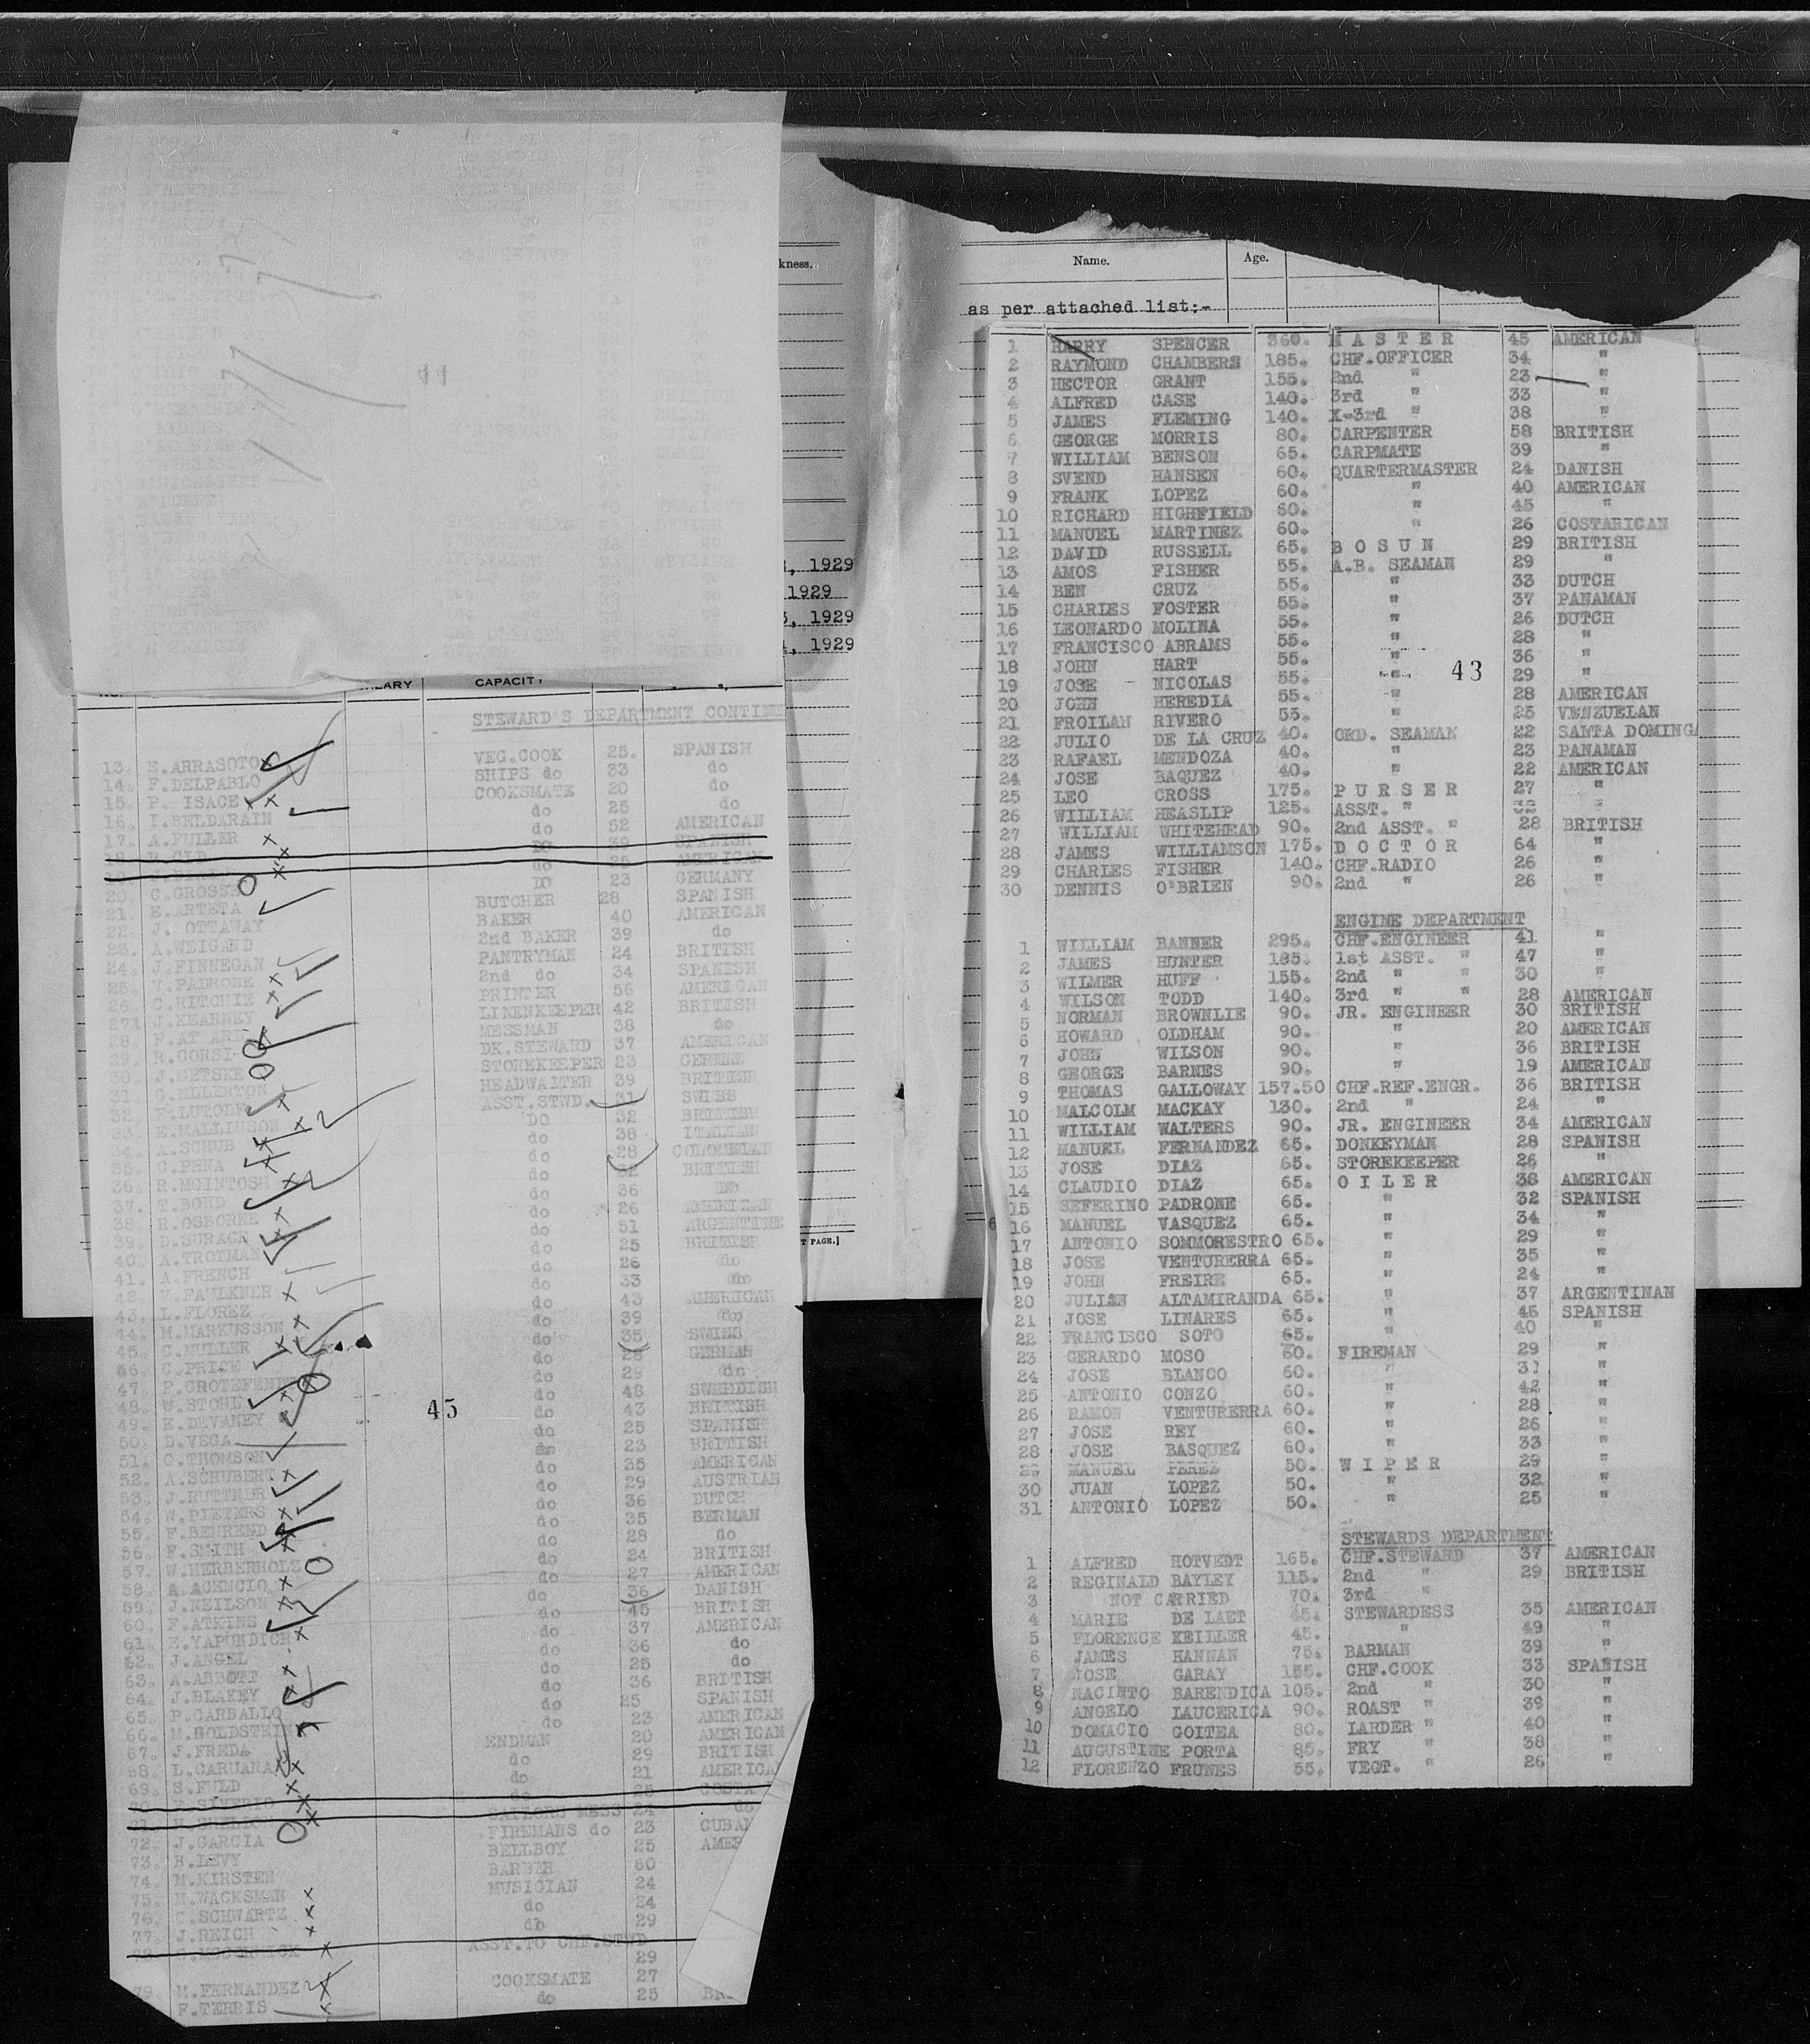 kness.
, 1929
1929
, 1929
, 1929
CAPACITY
STEWARD'S DEPARTMENT CONTINU
13. E.ARRASOTO VEG.COOK 25. SPANISH
14. F.DELPABLO SHIPS do 33 do
15. P. ISACE COOKSMATE 20 do
16. I.BELDARAIN do 25 do
17. A.FULLER do 52 AMERICAN
18. R.CID DO 39 SPANISH
do 25 AMERICAN
20. C.GROSSE DO 23 GERMANY
21. E.ARTETA BUTCHER 28 SPANISH
22. J. OTTAWAY BAKER 40 AMERICAN
23. A.WEIGAND 2nd BAKER 39 do
24. J.FINNEGAN PANTRYMAN 24 BRITISH
25. V.PADRONE 2nd do 34 SPANISH
26. C.RITCHIE PRINTER 56 AMERICAN
271 J.KEARNEY LINENKEEPER 42 BRITISH
28. MESSMAN 38 do
29. R.GORSI DK.STEWARD 37 AMERICAN
30. J.GETSKE STOREKEEPER 23 GERMAN
31. G.ELLERTON HEADWAITER 39 BRITISH
32. F.LUTOLF ASST.STWD. 31 SWISS
33. E.MALLINSON DO 32 BRITISH
34. A.SCHUB do 38 ITALIAN
35. C.PENA do 28 COLOMBIAN
36. R.MCINTOSH do 32 BRITISH
37. T.BOND do 36 DO
38. R.OSBORNE do 26 AMERICAN
39. D.SURACE do 51 ARGENTINE
40. A.TROTMAN do 25 BRITISH
41. A.FRENCH do 26 do
42. V.FAULKNER do 33 do
43. L.FLOREZ do 43 AMERICAN
44. M.MARKUSSON do 39 do
45. C.MULLER do 35 SWISS
46. C.PRICE do 28 GERMAN
47. P.GROTEFEND do 29 do
48. W.STOHL do 48 SWEDDISH
49. E.DEVANEY do 43 BRITISH
50. D.VEGA do 25 SPANISH
51. G.THOMSON do 23 BRITISH
52. A.SCHUBERT do 35 AMERICAN
53. J.RUTTNER do 29 AUSTRIAN
54. W.PIETERS do 36 DUTCH
55. F.BEHREND do 35 GERMAN
56. F.SMITH do 28 do
57. W.HERBERHOLZ do 24 BRITISH
58. A.ACENCIO do 27 AMERICAN
59. J.NEILSON do 36 DANISH
60. F.ATKINS do 45 BRITISH
61. E.YAPUNDICH do 37 AMERICAN
62. J.ANGEL do 36 do
63. A.ABBOTT do 25 do
64. J.BLAKEY do 36 BRITISH
65. P.CARBALLO do 25 SPANISH
66. M.GOLDSTEIN do 23 AMERICAN
67. J.FREDA ENDMAN 20 AMERICAN
68. L.CARUANA do 29 BRITISH
69. S.FULD do 21 AMERICA
70. F.SIVERIO do 25 COSTA
71. SAILORS MESS 24 do
72. J.GARCIA FIREMANS do 23 CUBAN
73. B.LEVY BELLBOY 25 AMER
74. M.KIRSTEN BARBER 60
75. M.WACKSMAN MUSICIAN 24
76. C.SCHWARTZ do 24
77. J.REICH do 29
78. ASST.TO CHF.STWD 29
79. M.FERNANDEZ COOKSMATE 27
F.TERRIS do 25 BR
45
T PAGE.]
44
Name. Age.
as per attached list:-
1 HARRY SPENCER 360. M A S T E R 45 AMERICAN
2 RAYMOND CHAMBERS 185. CHF.OFFICER 34 "
3 HECTOR GRANT 155. 2nd " 23 "
4 ALFRED CASE 140. 3rd " 33 "
5 JAMES FLEMING 140. X-3rd " 38 "
6 GEORGE MORRIS 80. CARPENTER 58 BRITISH
7 WILLIAM BENSON 65. CARPMATE 39 "
8 SVEND HANSEN 60. QUARTERMASTER 24 DANISH
9 FRANK LOPEZ 60. " 40 AMERICAN
10 RICHARD HIGHFIELD 60. " 45 "
11 MANUEL MARTINEZ 60. " 26 COSTARICAN
12 DAVID RUSSELL 65. B O S U N 29 BRITISH
13 AMOS FISHER 55. A.B. SEAMAN 29 "
14 BEN CRUZ 55. " 33 DUTCH
15 CHARLES FOSTER 55. " 37 PANAMAN
16 LEONARDO MOLINA 55. " 26 DUTCH
17 FRANCISCO ABRAMS 55. " 28 "
18 JOHN HART 55. " 36 "
19 JOSE NICOLAS 55. " 29 "
43
20 JOHN HEREDIA 55. " 28 AMERICAN
21 FROILAN RIVERO 55. " 25 VENZUELAN
22 JULIO DE LA CRUZ 40. ORD. SEAMAN 22 SANTA DOMINGA
23 RAFAEL MENDOZA 40. " 23 PANAMAN
24 JOSE BAQUEZ 40. " 22 AMERICAN
25 LEO CROSS 175. P U R S E R 27 "
26 WILLIAM HEASLIP 125. ASST. " "
27 WILLIAM WHITEHEAD 90. 2nd ASST. " 28 BRITISH
28 JAMES WILLIAMSON 175. D O C T O R 64 "
29 CHARLES FISHER 140. CHF.RADIO 26 "
30 DENNIS O'BRIEN 90. 2nd " 26 "
ENGINE DEPARTMENT
1 WILLIAM BANNER 295. CHF.ENGINEER 41 "
2 JAMES HUNTER 185. 1st ASST. " 47 "
3 WILMER HUFF 155. 2nd " " 30 "
4 WILSON TODD 140. 3rd " " 28 AMERICAN
5 NORMAN BROWNLIE 90. JR. ENGINEER 30 BRITISH
6 HOWARD OLDHAM 90. " 20 AMERICAN
7 JOHN WILSON 90. " 36 BRITISH
8 GEORGE BARNES 90. " 19 AMERICAN
9 THOMAS GALLOWAY 157.50 CHF.REF.ENGR. 36 BRITISH
10 MALCOLM MACKAY 130. 2nd " 24 "
11 WILLIAM WALTERS 90. JR. ENGINEER 34 AMERICAN
12 MANUEL FERNANDEZ 65. DONKEYMAN 28 SPANISH
13 JOSE DIAZ 65. STOREKEEPER 26 "
14 CLAUDIO DIAZ 65. O I L E R 38 AMERICAN
15 SEFERINO PADRONE 65. " 32 SPANISH
16 MANUEL VASQUEZ 65. " 34 "
17 ANTONIO SOMMORESTRO 65. " 29 "
18 JOSE VENTURERRA 65. " 35 "
19 JOHN FREIRE 65. " 24 "
20 JULIAN ALTAMIRANDA 65. " 37 ARGENTINAN
21 JOSE LINARES 65. " 46 SPANISH
22 FRANCISCO SOTO 65. " 40 "
23 GERARDO MOSO 60. FIREMAN 29 "
24 JOSE BLANCO 60. " "
25 ANTONIO CONZO 60. " 42 "
26 RAMON VENTURERRA 60. " 28 "
27 JOSE REY 60. " 26 "
28 JOSE BASQUEZ 60. " 33 "
29 MANUEL PEREZ 50. W I P E R 29 "
30 JUAN LOPEZ 50. " 32 "
31 ANTONIO LOPEZ 50. " 25 "
STEWARDS DEPARTMENT
1 ALFRED HOTVEDT 165. CHF.STEWARD 37 AMERICAN
2 REGINALD BAYLEY 115. 2nd " 29 BRITISH
3 NOT CARRIED 70. 3rd "
4 MARIE DE LAET 45. STEWARDESS 35 AMERICAN
5 FLORENCE KEILLER 45. " 49 "
6 JAMES HANNAN 75. BARMAN 39 "
7 JOSE GARAY 155. CHF.COOK 33 SPANISH
8 NACINTO BARENDICA 105. 2nd " 30 "
9 ANGELO LAUCERICA 90. ROAST " 39 "
10 DOMACIO GOITEA 80. LARDER " 40 "
11 AUGUSTINE PORTA 85. FRY " 38 "
12 FLORENZO FRUNES 55. VEGT. " 26 "